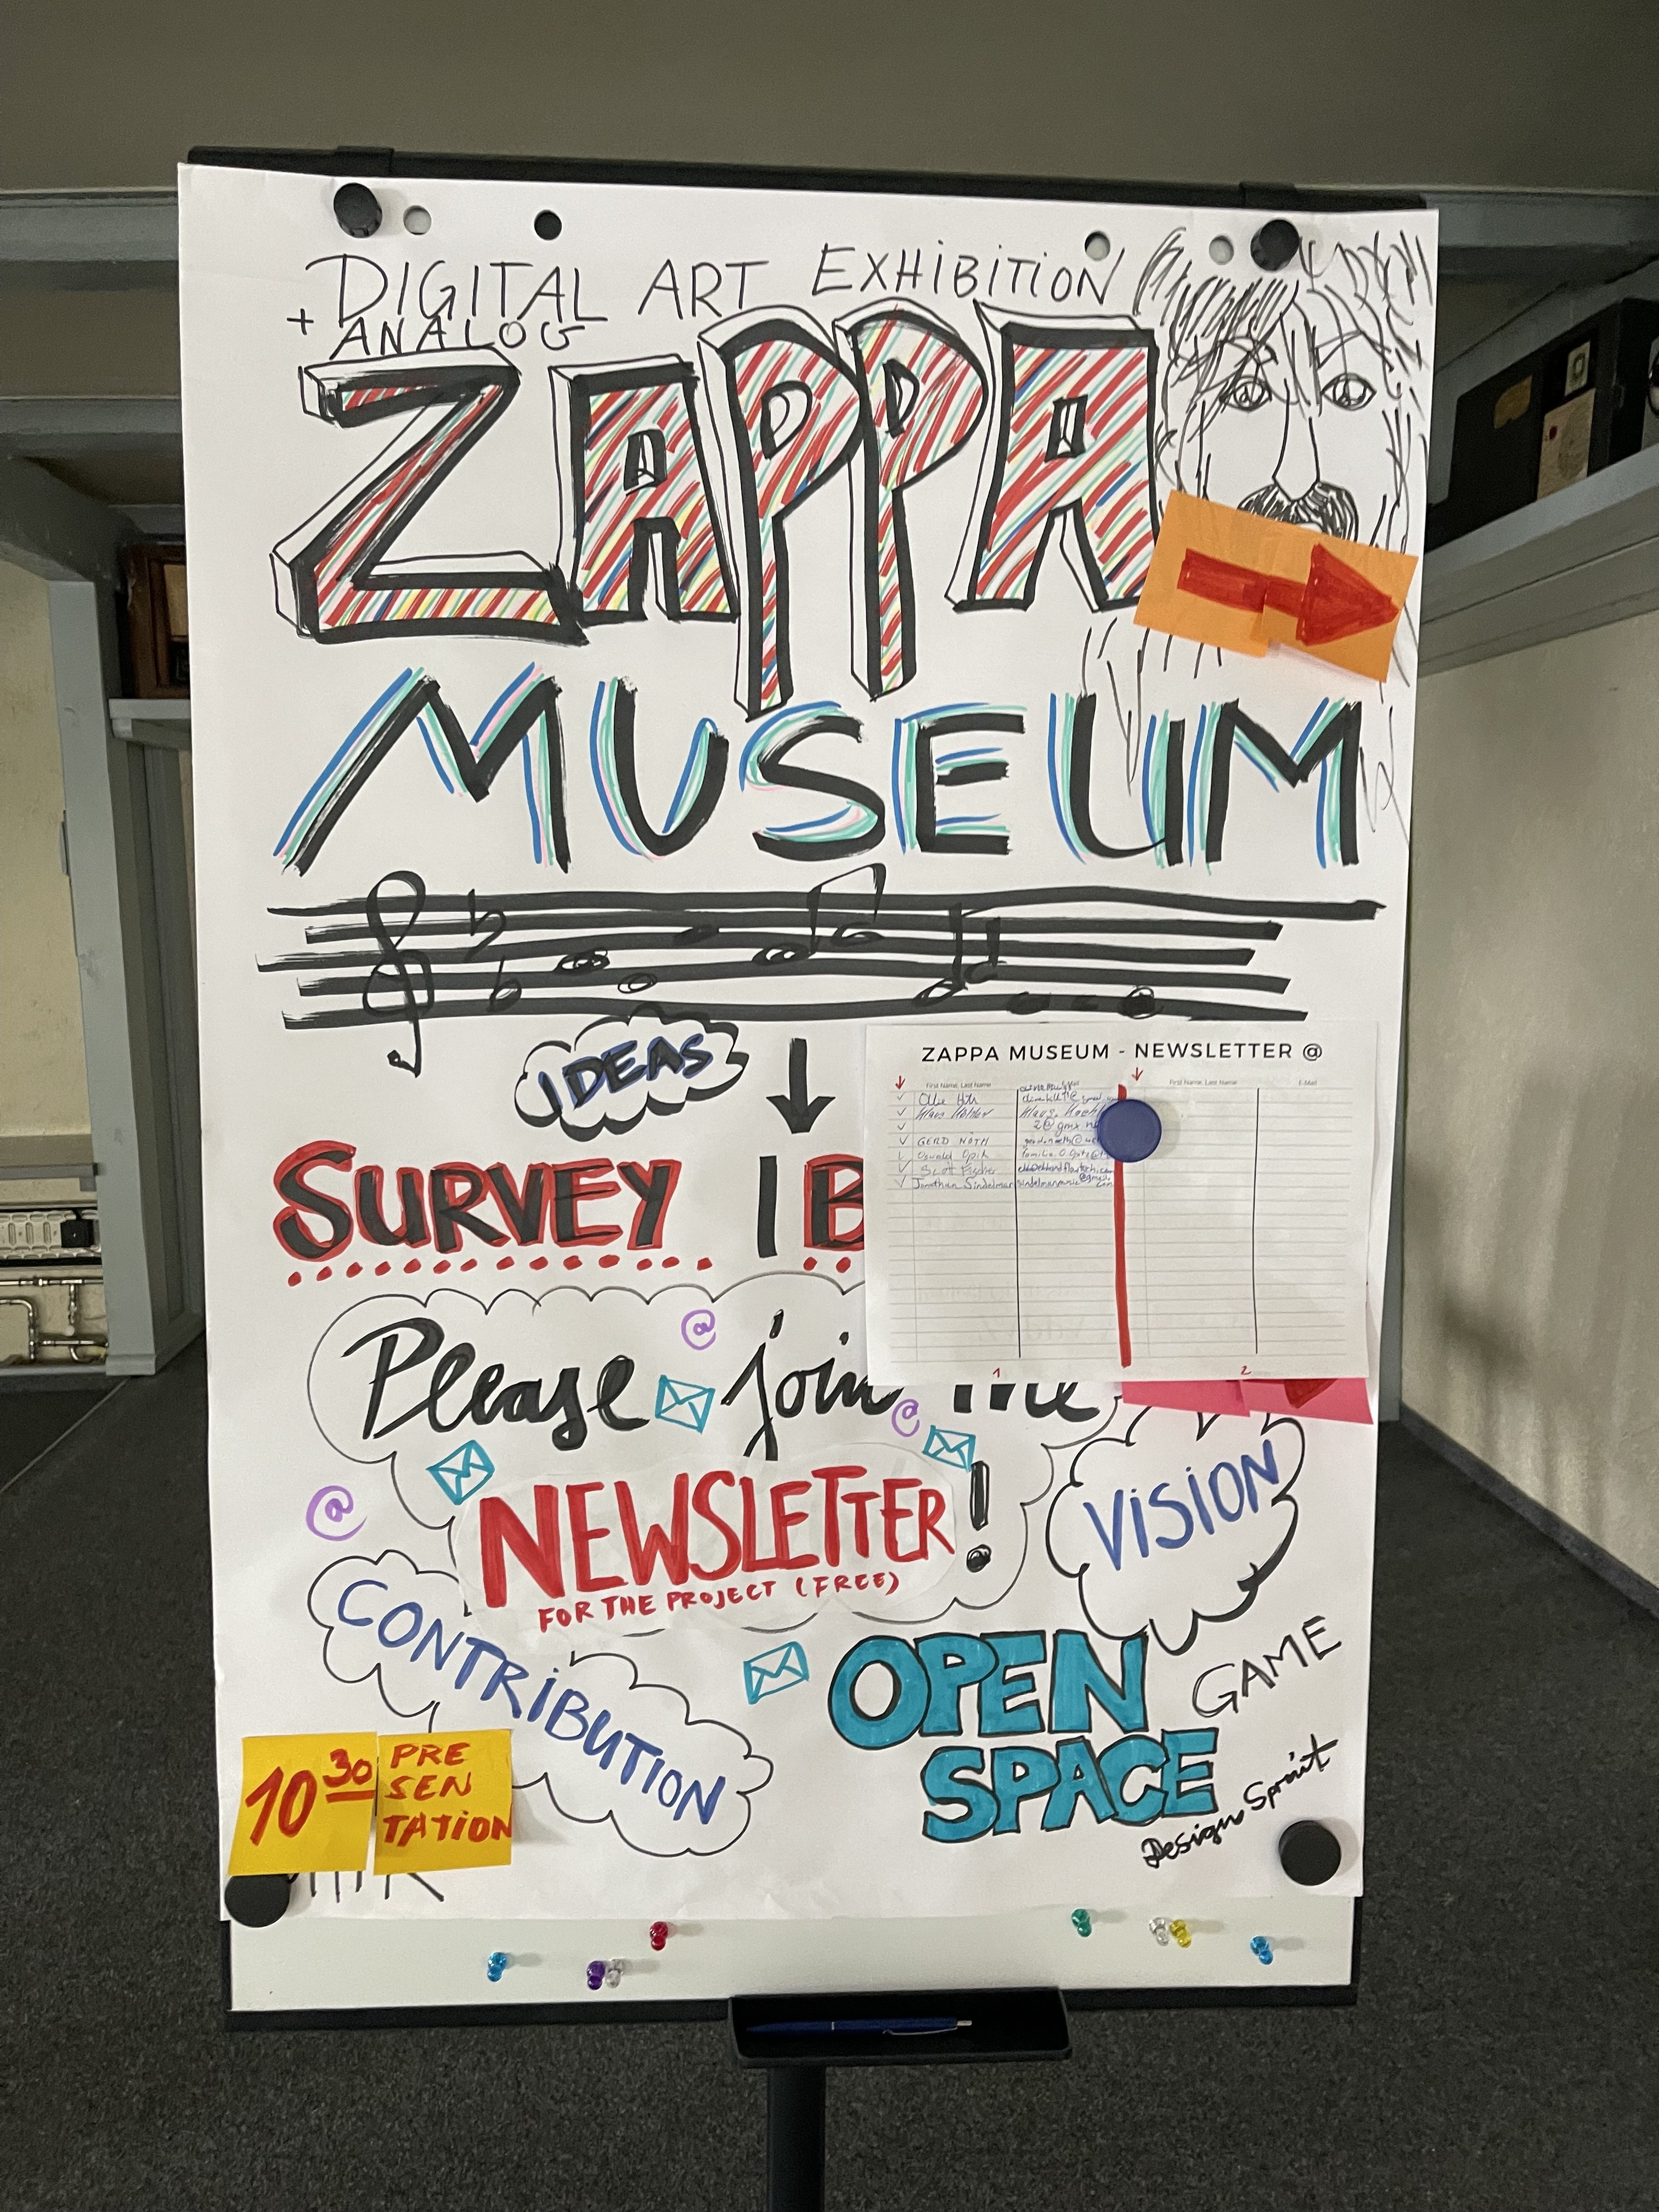 DIGITAL ART EXHIBITION
+ ANALOG
ZAPPA
MUSEUM
IDEAS
SURVEY | B
ZAPPA MUSEUM - NEWSLETTER @
First Name, Last Name
First Name, Last Name E-Mail
GERD NOTH
Scott Fischer
Jonathan Sindelmar
1 2
Please join the
@
@
@
NEWSLETTER!
FOR THE PROJECT (FREE)
VISION
CONTRIBUTION
OPEN
SPACE
GAME
Design Sprint
10 30
PRE
SEN
TATION